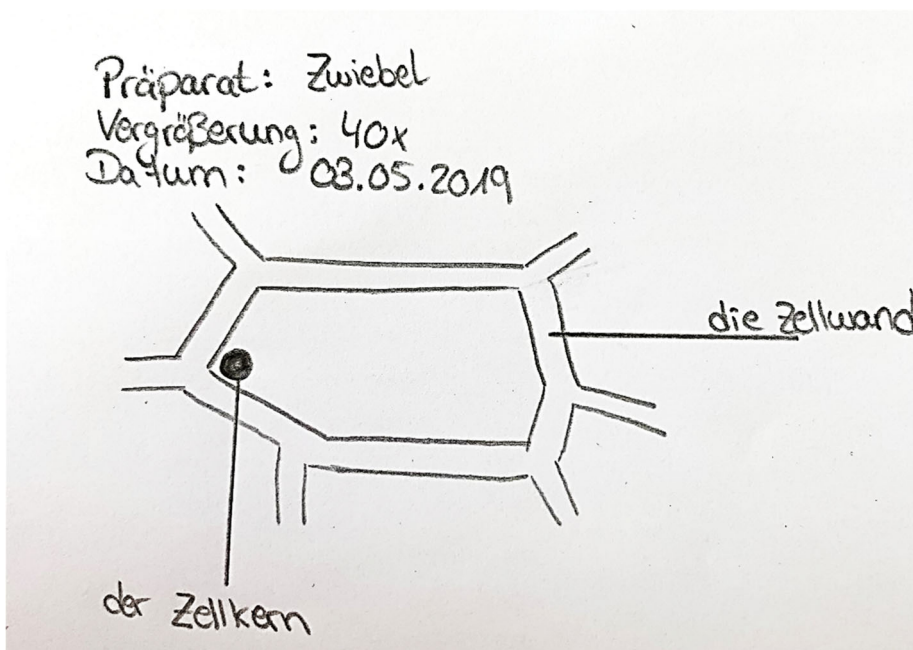 Präparat: Zwiebel
Vergrößerung: 40x
Datum: 03.05.2019
die Zellwand
der Zellkern